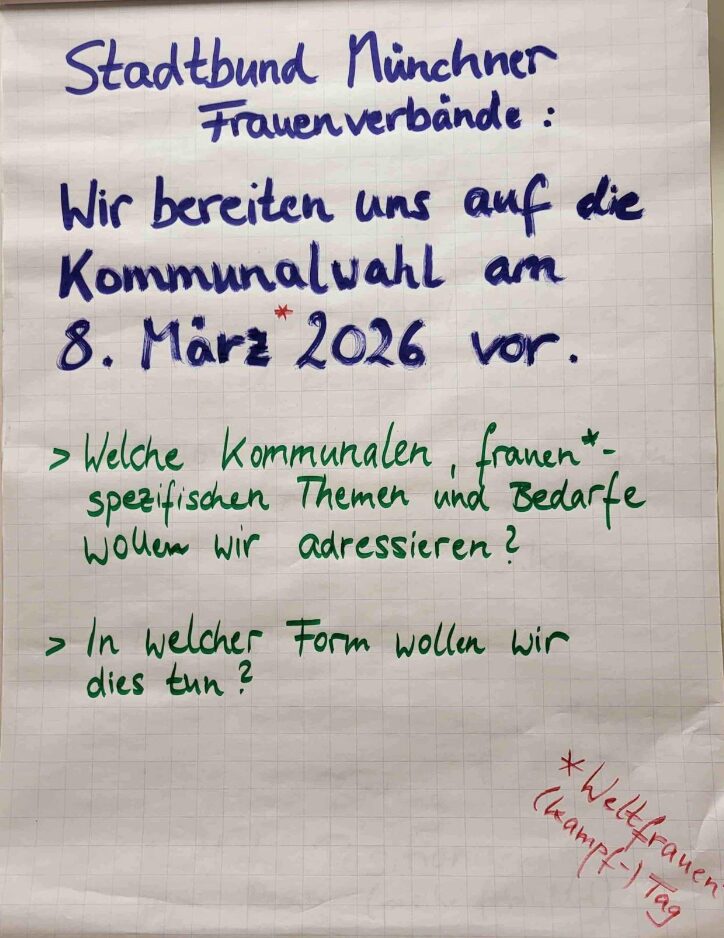 Stadtbund Münchner
Frauenverbände:
Wir bereiten uns auf die
Kommunalwahl am
8. März* 2026 vor.
> Welche kommunalen, frauen*-
spezifischen Themen und Bedarfe
wollen wir adressieren?
> In welcher Form wollen wir
dies tun?
* Weltfrauen
(kampf-) Tag